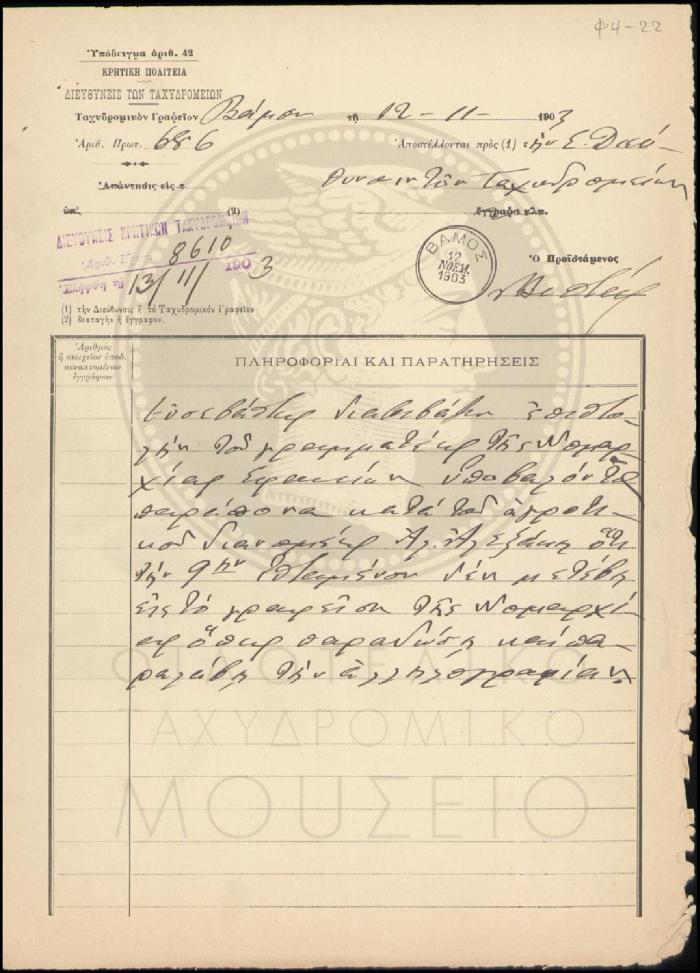 Φ4-22
Ὑπόδειγμα ἀριθ. 42
ΚΡΗΤΙΚΗ ΠΟΛΙΤΕΙΑ
ΔΙΕΥΘΥΝΣΙΣ ΤΩΝ ΤΑΧΥΔΡΟΜΕΙΩΝ
Ταχυδρομικὸν Γραφεῖον Βάμου τῇ 12-11-1903
Ἀριθ. Πρωτ. 686
Ἀποστέλλονται πρὸς (1) τὴν Σ. Διεύ-
θυνσιν τῶν Ταχυδρομείων
Ἀπάντησις εἰς τ
ὑπ' (2)
ἔγγραφα κλπ.
ΔΙΕΥΘΥΝΣΙΣ ΚΡΗΤΙΚΩΝ ΤΑΧΥΔΡΟΜΕΙΩΝ
Ἀριθ. Πρωτ. 8610
13/11/1903
ΒΑΜΟΣ
12
ΝΟΕΜ.
1903
Ὁ Προϊστάμενος
(1) τὴν Διεύθυνσιν ἢ τὸ Ταχυδρομικὸν Γραφεῖον
(2) διαταγὴν ἢ ἔγγραφον.
Ἀριθμὸς
ἢ στοιχεῖον ὑποδ.
συναπτομένων
ἐγγράφων
ΠΛΗΡΟΦΟΡΙΑΙ ΚΑΙ ΠΑΡΑΤΗΡΗΣΕΙΣ
Εὐσεβάστως διαβιβάζω ἐπιστο-
λὴν τοῦ γραμματέως τῆς Νομαρ-
χίας Σφακίων ὑποβαλόντος
παράπονα κατὰ τοῦ ἀγροτι-
κοῦ διανομέως Ἀλ. Ἀλεξάκη ὅτι
τὴν 9ην ἱσταμένου δὲν μετέβη
εἰς τὸ γραφεῖον τῆς Νομαρχί-
ας ὅπως παραδώσῃ καὶ πα-
ραλάβῃ τὴν ἀλληλογραφίαν
ΦΙΛΟΤΕΛΙΚΟ
ΤΑΧΥΔΡΟΜΙΚΟ
ΜΟΥΣΕΙΟ